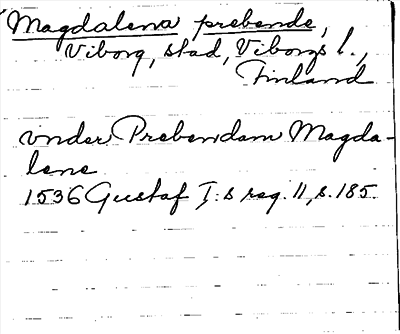 Magdalena prebende,
Viborg, stad, Viborgs l.,
Finland
vnder Prebendam Magda-
lene
1536 Gustaf I:s reg. 11, s. 185.